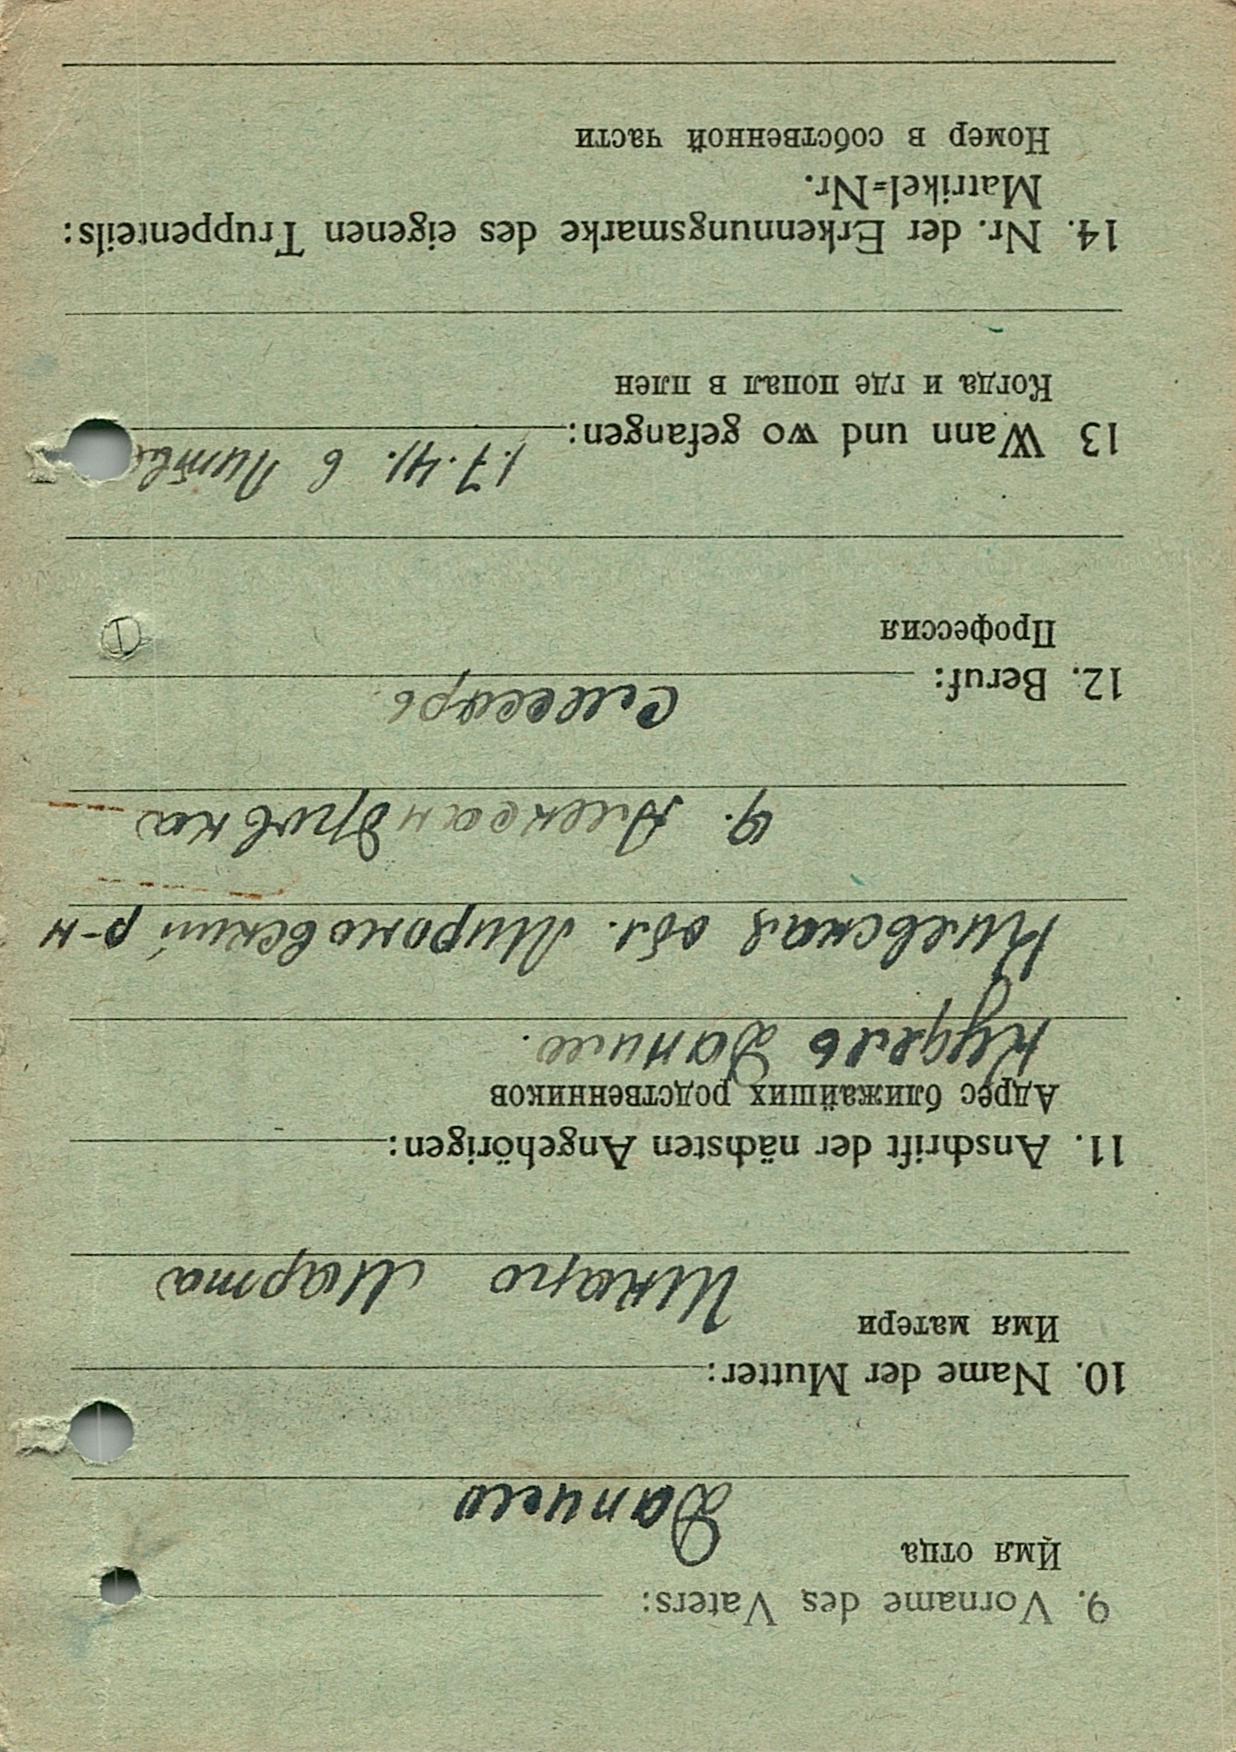 9. Vorname des Vaters:
Имя отца
Данило
10. Name der Mutter:
Имя матери
Шкаро Марта
11. Anschrift der nächsten Angehörigen:
Адрес ближайших родственников
Кудель Данило.
Киевская обл. Мироновский р-н
Александровка
12. Beruf:
Слесарь
Профессия
13 Wann und wo gefangen:
1.7.41. в Литве
Когда и где попал в плен
14. Nr. der Erkennungsmarke des eigenen Truppenteils:
Matrikel=Nr.
Номер в собственной части